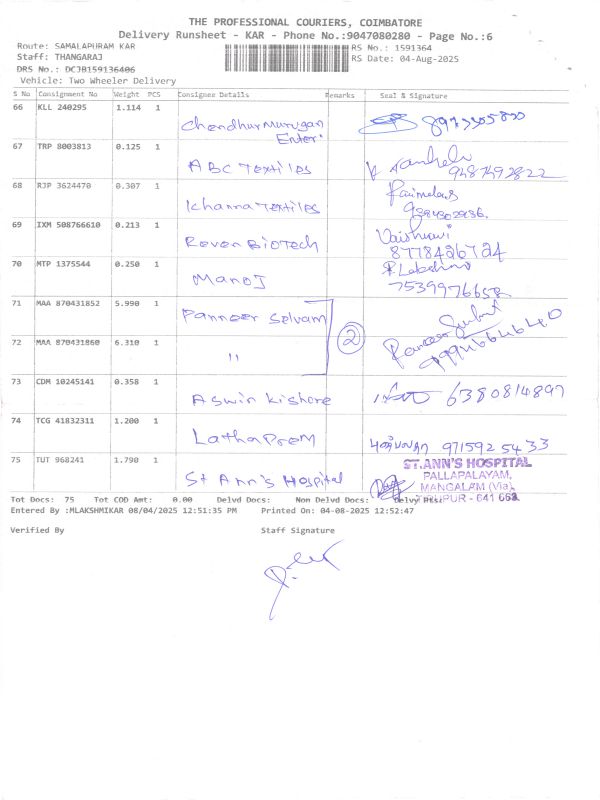 THE PROFESSIONAL COURIERS, COIMBATORE
Delivery Runsheet - KAR - Phone No.:9047080280 - Page No.:6
Route: SAMALAPURAM KAR RS No.: 1591364
Staff: THANGARAJ RS Date: 04-Aug-2025
DRS No.: DCJB159136406
Vehicle: Two Wheeler Delivery
S No Consignment No Weight PCS Consignee Details Remarks Seal & Signature
66 KLL 240295 1.114 1
Chendhur Murugan 8973305800
Enter
67 TRP 8003813 0.125 1
ABC Textiles 9487492822
68 RJP 3624470 0.307 1
Khanna Textiles
69 IXM 508766610 0.213 1 Vaishnavi
Reven Biotech 8778426724
70 MTP 1375544 0.250 1
Manoj 7539976658
71 MAA 870431852 5.990 1
Panneer Selvam
2
72 MAA 870431860 6.310 1
"
73 CDM 10245141 0.358 1
Aswin Kishore 6380814897
74 TCG 41832311 1.200 1
Latha Prem 9715925433
75 TUT 968241 1.790 1 ST.ANN'S HOSPITAL
St Ann's Hospital PALLAPALAYAM,
MANGALAM (Via),
TIRUPUR - 641 663.
Tot Docs: 75 Tot COD Amt: 0.00 Delvd Docs: Non Delvd Docs:
Entered By :MLAKSHMIKAR 08/04/2025 12:51:35 PM Printed On: 04-08-2025 12:52:47
Verified By Staff Signature